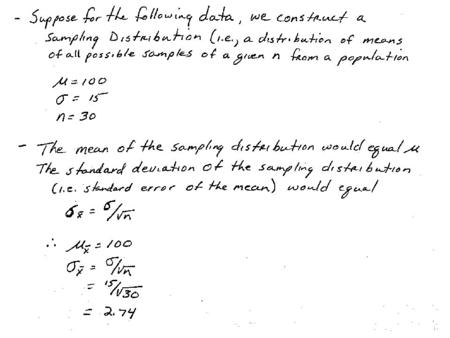 - Suppose for the following data, we construct a
Sampling Distribution (i.e., a distribution of means
of all possible samples of a given n from a population
μ = 100
σ = 15
n = 30
- The mean of the sampling distribution would equal μ
The standard deviation of the sampling distribution
(i.e. standard error of the mean) would equal
σx̄ = σ/√n
∴ μx̄ = 100
σx̄ = σ/√n
= 15/√30
= 2.74